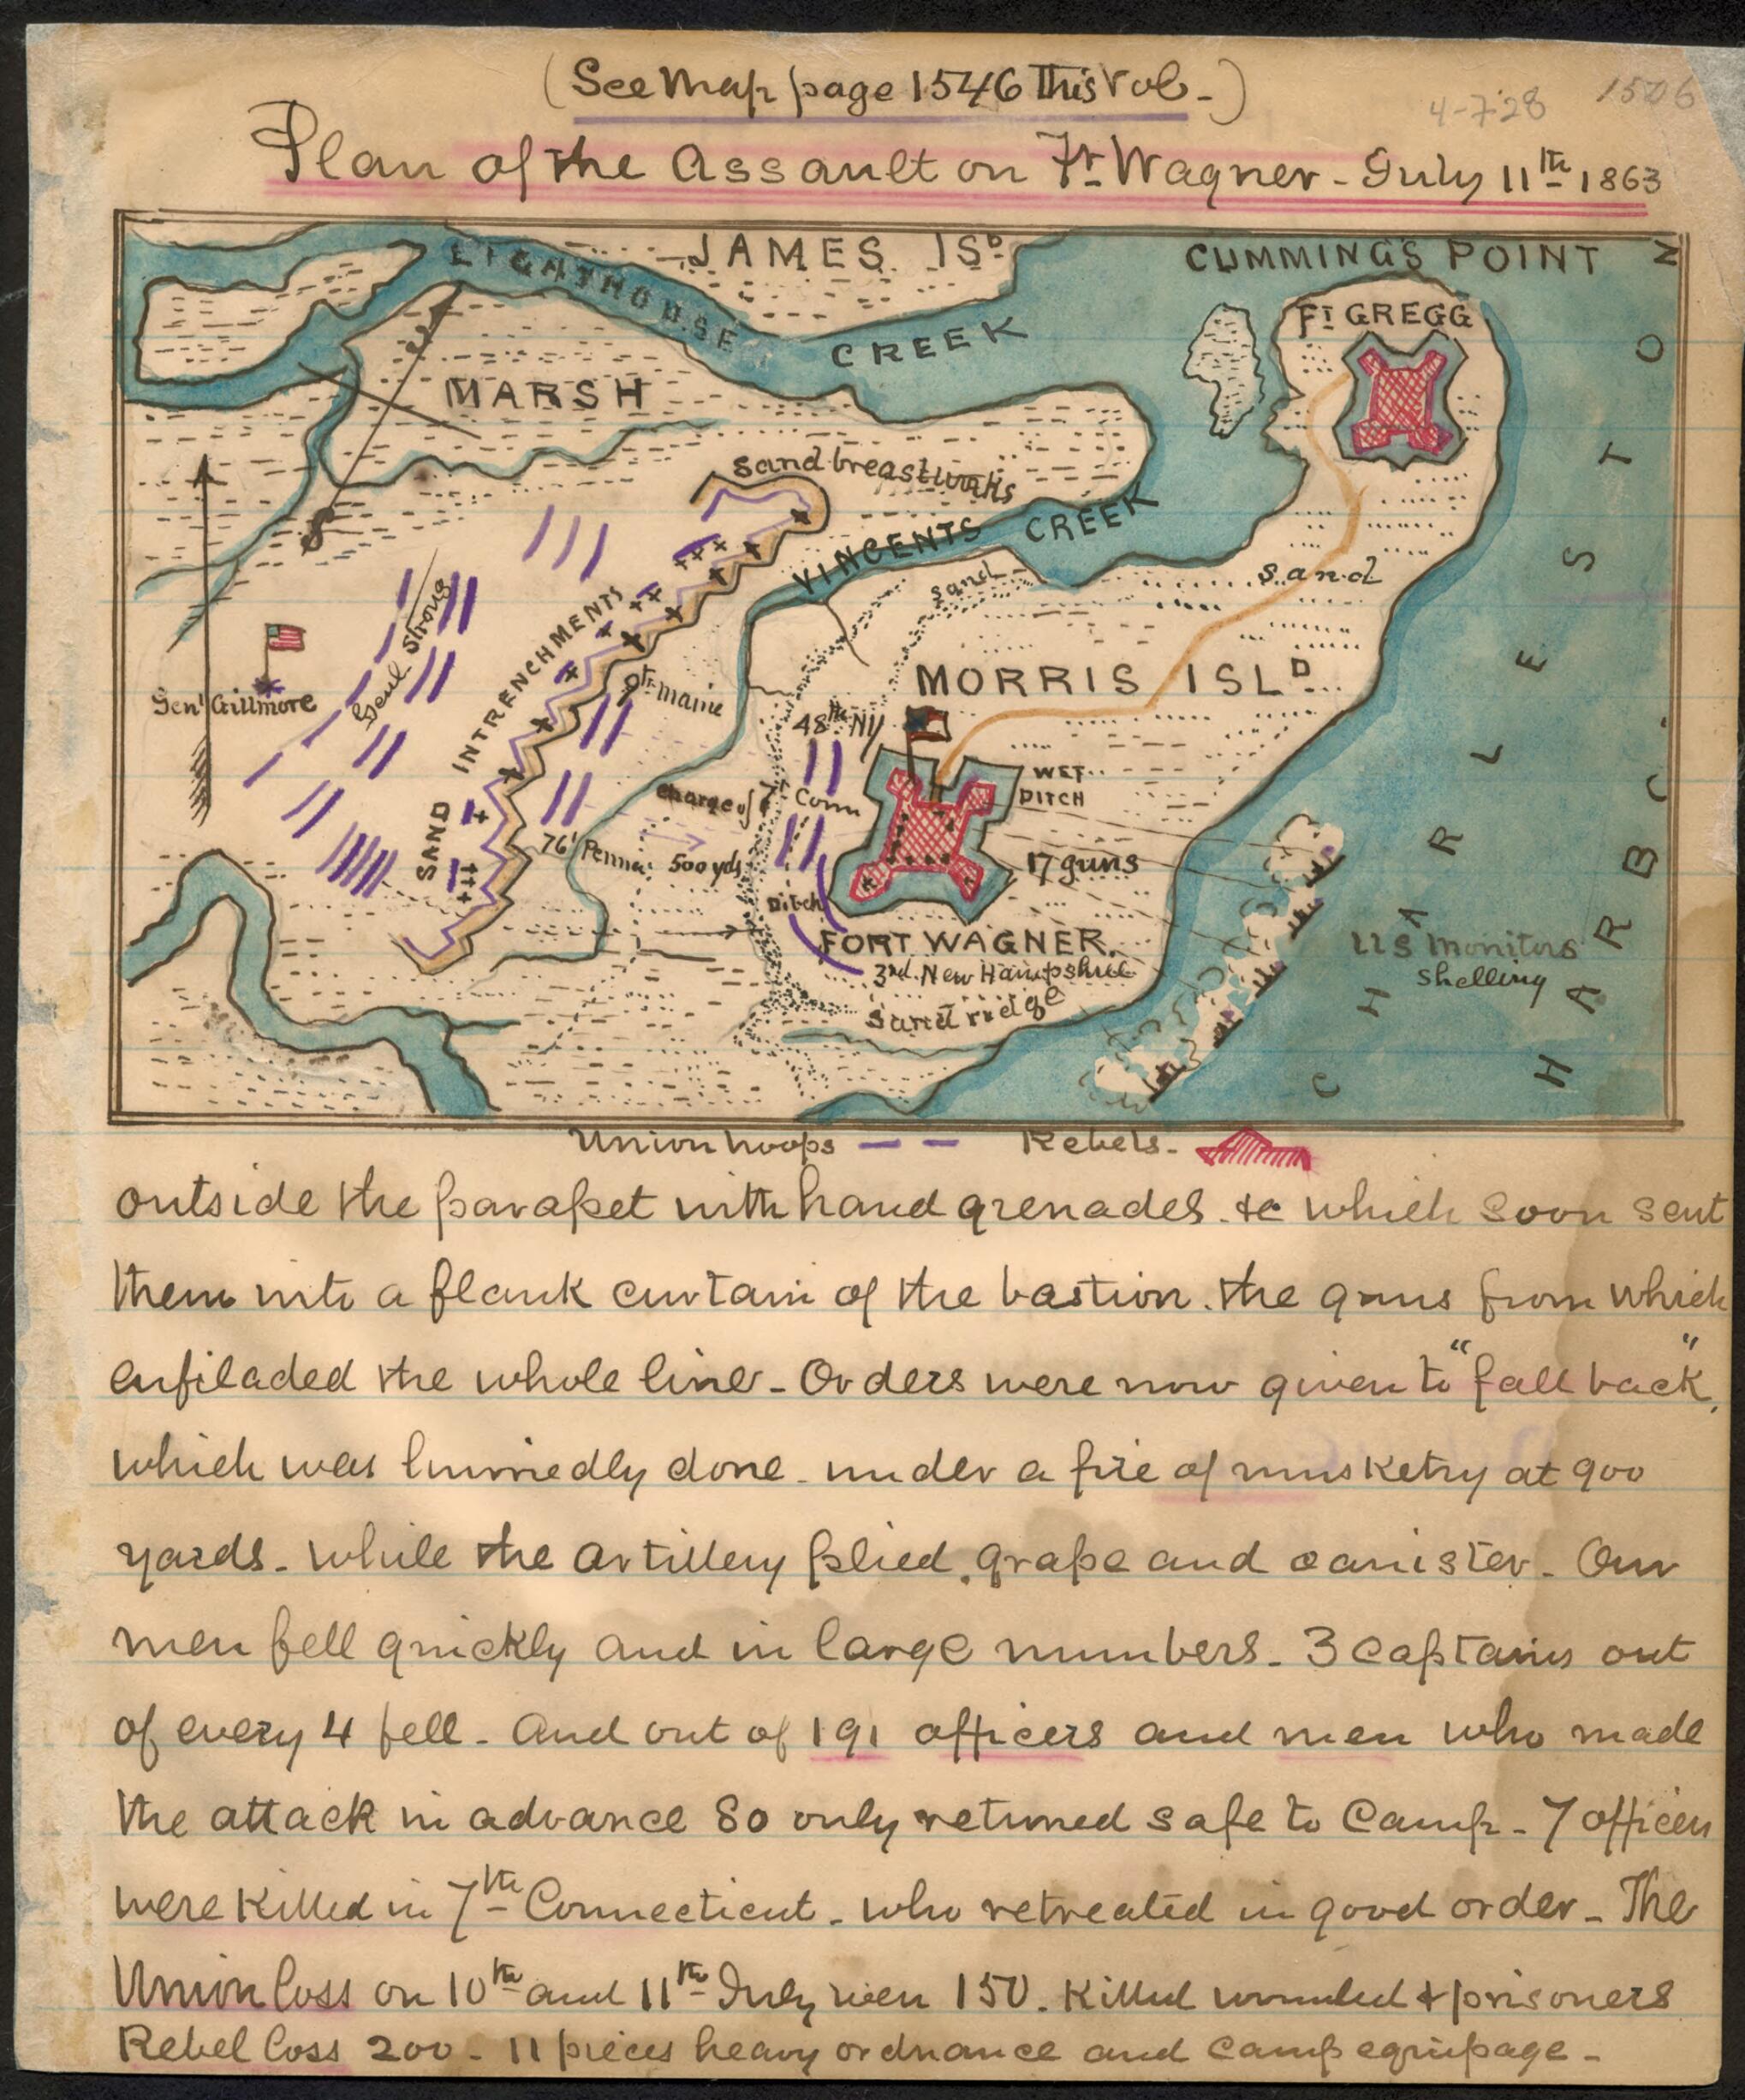 (See Map page 1546 This Vol-)
4-7-28
1506
Plan of the Assault on Ft Wagner - July 11th 1863
JAMES ISD
CUMMINGS POINT
LIGHTHOUSE CREEK
Ft GREGG
MARSH
Sand breastworks
VINCENTS CREEK
sand
sand
Genl Strong
Genl Gillmore
SAND INTRENCHMENTS
9th maine
MORRIS ISLD
48th NY
WET DITCH
charge of 7th Conn
76th Penna
500 yds
17 guns
Ditch
FORT WAGNER
3rd New Hampshire
Sand ridge
US Monitors
Shelling
CHARLESTON
HARBOR
Union troops
Rebels-
outside the parapet with hand grenades. &c which soon sent
them into a flank curtain of the bastion. the guns from which
enfiladed the whole line - Orders were now given to "fall back",
which was hurriedly done - under a fire of musketry at 900
yards - while the artillery plied. grape and canister - Our
men fell quickly and in large numbers - 3 Captains out
of every 4 fell - And out of 191 officers and men who made
the attack in advance 80 only returned safe to Camp - 7 officers
were Killed in 7th Connecticut - who retreated in good order - The
Union loss on 10th and 11th July were 150. Killed wounded & prisoners
Rebel loss 200 - 11 pieces heavy ordnance and camp equipage -